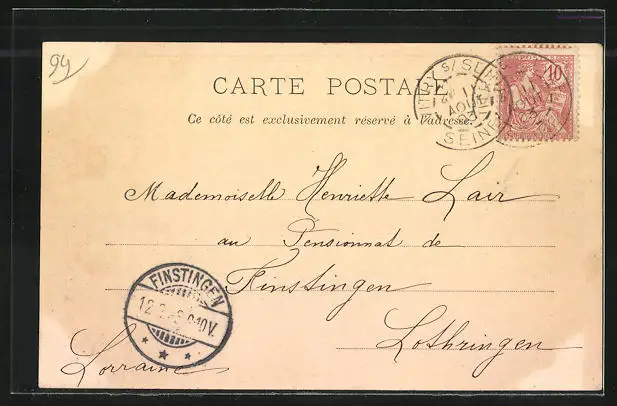 94
CARTE POSTALE
Ce côté est exclusivement réservé à l'adresse.
VITRY S/ SEINE
AOUT
SEINE
10
Mademoiselle Henriette Lair
au Pensionnat de
Finstingen
Lothringen
Lorraine
FINSTINGEN